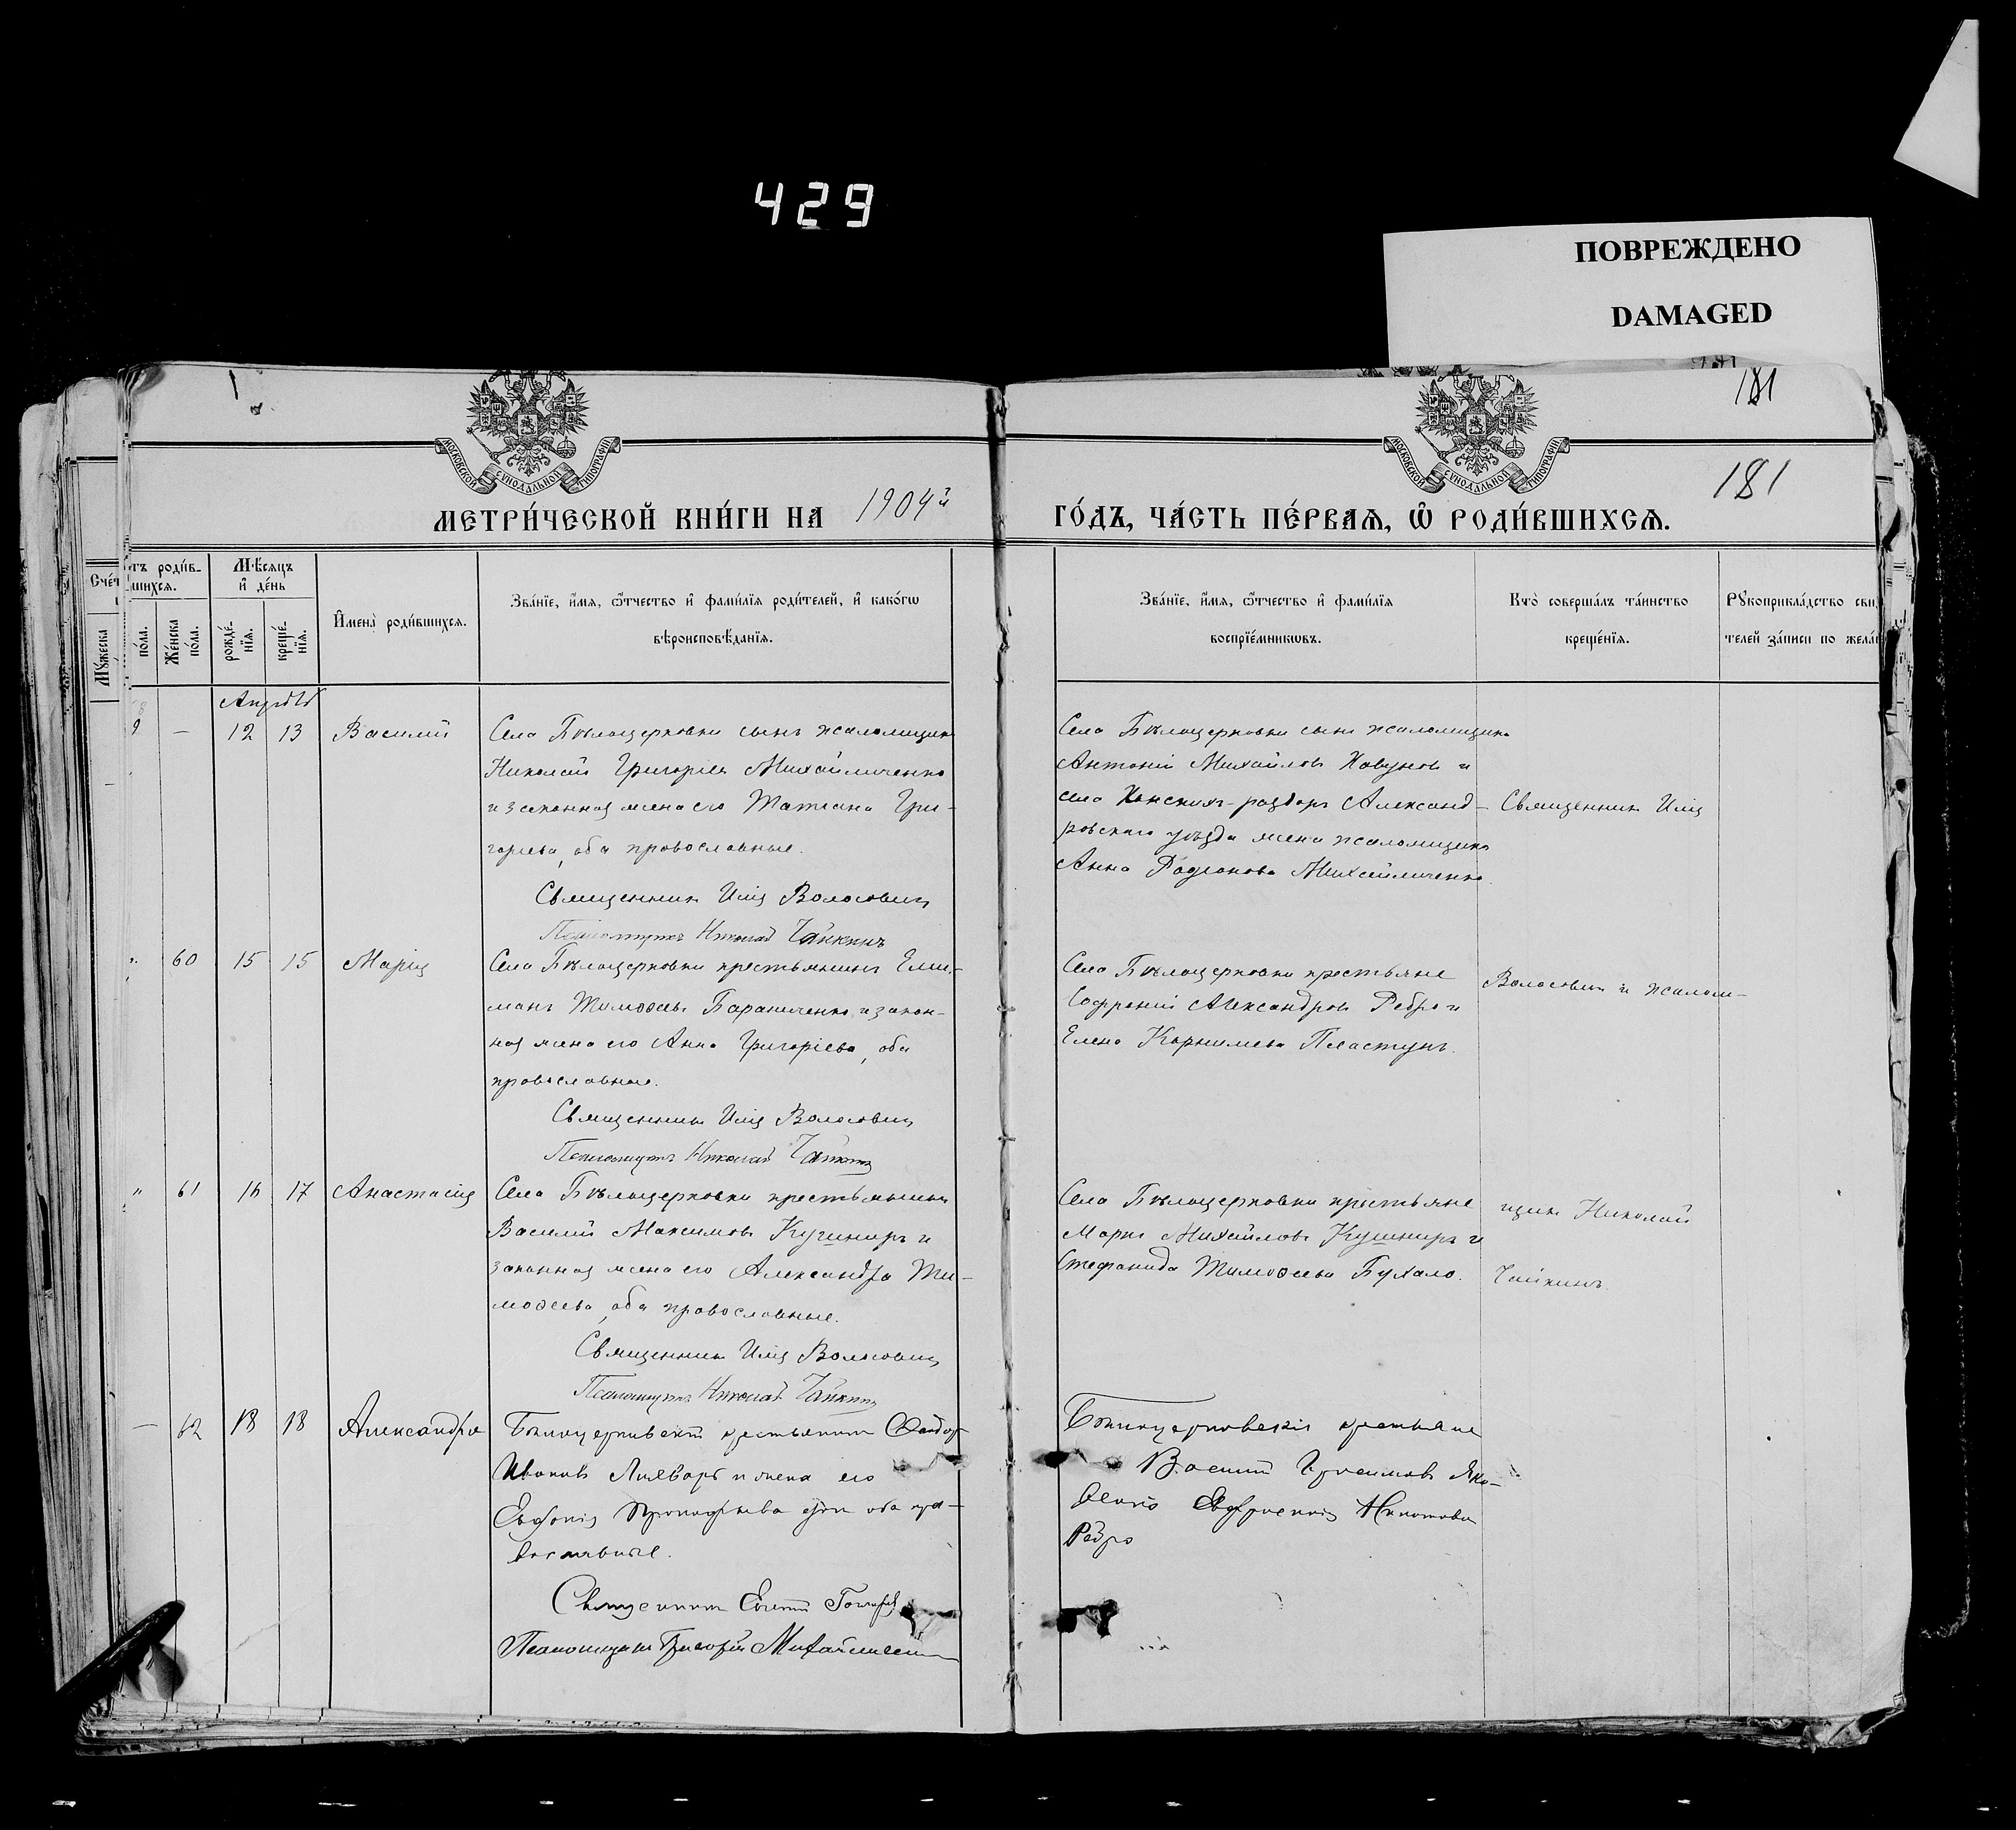 429
ПОВРЕЖДЕНО
DAMAGED
181
МОСКОВСКОЙ СѴНОДАЛЬНОЙ ТИПОГРАФІИ
МОСКОВСКОЙ СѴНОДАЛЬНОЙ ТИПОГРАФІИ
181
МЕТРИ́ЧЕСКОЙ КНИ́ГИ НА 1904й
ГО́ДЪ, ЧА́СТЬ ПЕ́РВАѦ, Ѽ РОДИ́ВШИХСѦ.
Сче́тъ роди́вшихсѧ.
Мꙋ́жеска по́ла.
Же́нска по́ла.
Мѣ́сѧцъ и҆ де́нь
рожде́нїѧ.
креще́нїѧ.
И҆мена̀ роди́вшихсѧ.
Зва́нїе, и҆́мѧ, ѻ҆́тчество и҆ фами́лїѧ роди́телей, и҆ како́гѡ
вѣроисповѣ́данїѧ.
Зва́нїе, и҆́мѧ, ѻ҆́тчество и҆ фами́лїѧ
воспрїе́мникѡвъ.
Кто̀ соверша́лъ та́инство
креще́нїѧ.
Рꙋкоприкла́дство сви
телей за́писи по жела́
Апрѣль
9 — 12 13 Василій
Села Бѣлоцерковки сынъ псаломщика
Николай Григоріевъ Михайличенко
и законная жена его Татіана Гри-
горіева, оба православные.
Священникъ Илія Волосовичъ
Псаломщикъ Николай Чайкинъ
Села Бѣлоцерковки сынъ псаломщика
Антоній Михайловъ Кавуновъ и
села Конскихъ-раздоръ Александ-
ровскаго уѣзда жена псаломщика
Анна Родіонова Михайличенко.
Священникъ Илія
" 60 15 15 Марія
Села Бѣлоцерковки крестьянинъ
Тимоѳеевъ Бараниченко и закон-
ная жена его Анна Григоріева, оба
православные.
Священникъ Илія Волосовичъ
Псаломщикъ Николай Чайкинъ
Села Бѣлоцерковки крестьяне
Софроній Александровъ Ребро и
Елена Корнилева Пластунъ.
Волосовичъ и псалом-
" 61 16 17 Анастасія
Села Бѣлоцерковки крестьянинъ
Василій Максимовъ Кушниръ и
законная жена его Александра Ти-
моѳеева, оба православные.
Священникъ Илія Волосовичъ
Псаломщикъ Николай Чайкинъ
Села Бѣлоцерковки крестьяне
Маркъ Михайловъ Кушниръ и
Стефанида Тимоѳеева Бухало.
щикъ Николай
Чайкинъ.
— 62 18 18 Александра
Бѣлоцерковскій крестьянинъ
Ивановъ и жена его
оба пра-
вославные.
Священникъ
Псаломщикъ Григорій Михайличенко
Бѣлоцерковскіе крестьяне
Василій Яко-
венко
Ребро